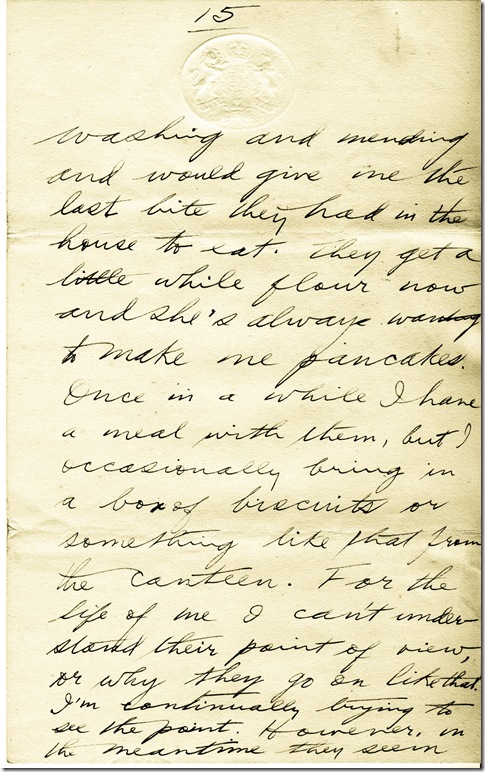 15
washing and mending
and would give me the
last bite they had in the
house to eat. They get a
little while flour now
and she's always wanting
to make me pancakes.
Once in a while I have
a meal with them, but I
occasionally bring in
a box of biscuits or
something like that from
the canteen. For the
life of me I can't under-
stand their point of view,
or why they go on like that.
I'm continually trying to
see the point. However, in
the meantime they seem